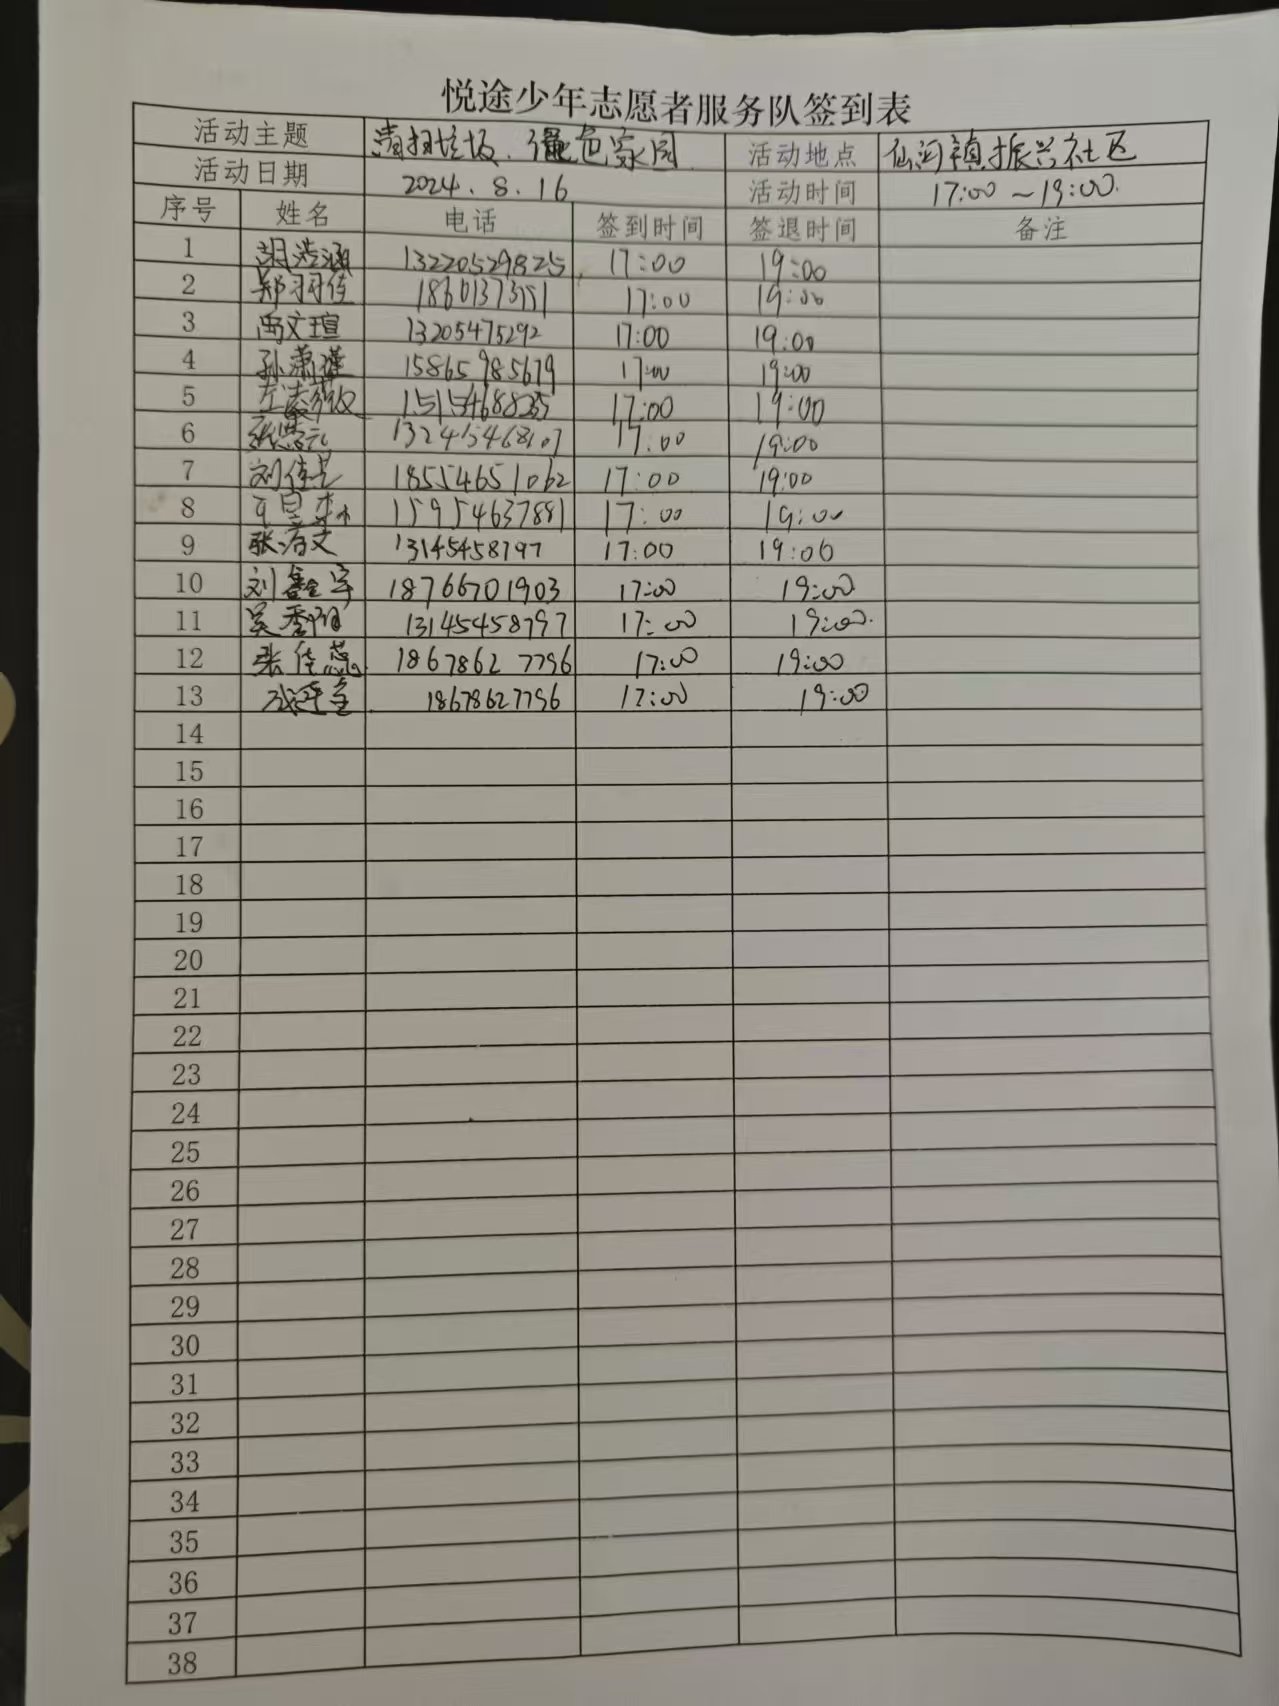 悦途少年志愿者服务队签到表
活动主题 清扫垃圾、绿色家园 活动地点 仙河镇振兴社区
活动日期 2024.8.16 活动时间 17:00~19:00.
序号 姓名 电话 签到时间 签退时间 备注
1 胡浩涵 13220529825 17:00 19:00
2 郑羽佳 18601373751 17:00 19:00
3 禹文瑄 13205475292 17:00 19:00
4 孙潇瑾 15865985679 17:00 19:00
5 17:00 19:00
6 17:00 19:00
7 18554651062 17:00 19:00
8 15954637881 17:00 19:00
9 13145458797 17:00 19:00
10 刘鑫宇 18766701903 17:00 19:00
11 13145458797 17:00 19:00.
12 张佳蕊 18678627796 17:00 19:00
13 18678627796 17:00 19:00
14
15
16
17
18
19
20
21
22
23
24
25
26
27
28
29
30
31
32
33
34
35
36
37
38